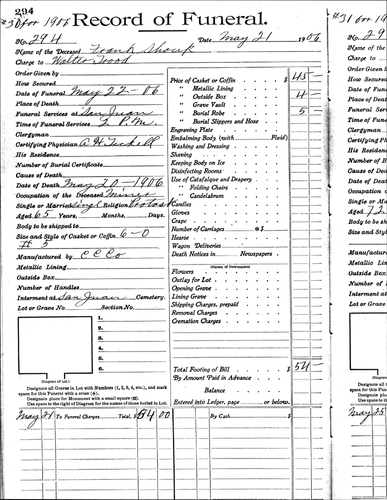 294
#30 for 1906
Record of Funeral.
No. 294
Date May 21 1906
Name of the Deceased Frank Shouk
Charge to Walter Wood
Order Given by
How Secured
Date of Funeral May 22-06
Place of Death
Funeral Services at San Juan
Time of Funeral Services 2 P.M.
Clergyman
Certifying Physician A H Tuck
His Residence
Number of Burial Certificate
Cause of Death
Date of Death May 20-1906
Occupation of the Deceased Miner
Single or Married Single Religion Protest
Aged 65 Years, Months, Days.
Body to be shipped to
Size and Style of Casket or Coffin 6-0
# 5
Manufactured by C C Co
Metallic Lining
Outside Box
Number of Handles
Interment at San Juan Cemetery.
Lot or Grave No. Section No.
1.
2.
3.
4.
5.
6.
(Diagram of Lot.)
Designate all Graves in Lot with Numbers (1, 2, 3, 4, etc.), and mark
space for this Funeral with a cross (+).
Designate place for Monument with a small square (□).
Use space to right of Diagram for the names of those buried in Lot.
Price of Casket or Coffin $ 45 -
" Metallic Lining
" Outside Box 4 -
" Grave Vault
" Burial Robe 5
" Burial Slippers and Hose
Engraving Plate
Embalming Body (with Fluid)
Washing and Dressing
Shaving
Keeping Body on Ice
Disinfecting Rooms
Use of Catafalque and Drapery
" Folding Chairs
" Candelabrum
Candles
Gloves
Crape
Number of Carriages @ $
Hearse
Wagon Deliveries
Death Notices in Newspapers
(Names of Newspapers)
Flowers
Outlay for Lot
Opening Grave
Lining Grave
Shipping Charges, prepaid
Removal Charges
Cremation Charges
Total Footing of Bill $ 54 -
By Amount Paid in Advance
Balance
Entered into Ledger, page or below.
May 21 To Funeral Charges Total, $54 00
By Cash $
#31 for 1906
No. 29
Name of the
Charge to
Order Given
How Secured
Date of Funer
Place of Dea
Funeral Servi
Time of Funer
Clergyman
Certifying Ph
His Residen
Number of Bu
Cause of Dea
Date of Death
Occupation of
Single or Mar
Aged 72
Body to be sh
Size and Sty
Manufactured
Metallic Lin
Outside Box
Number of H
Interment at
Lot or Grave
(Diagram
Designate all G
space for this Fune
Designate plac
Use space to rig
May 25